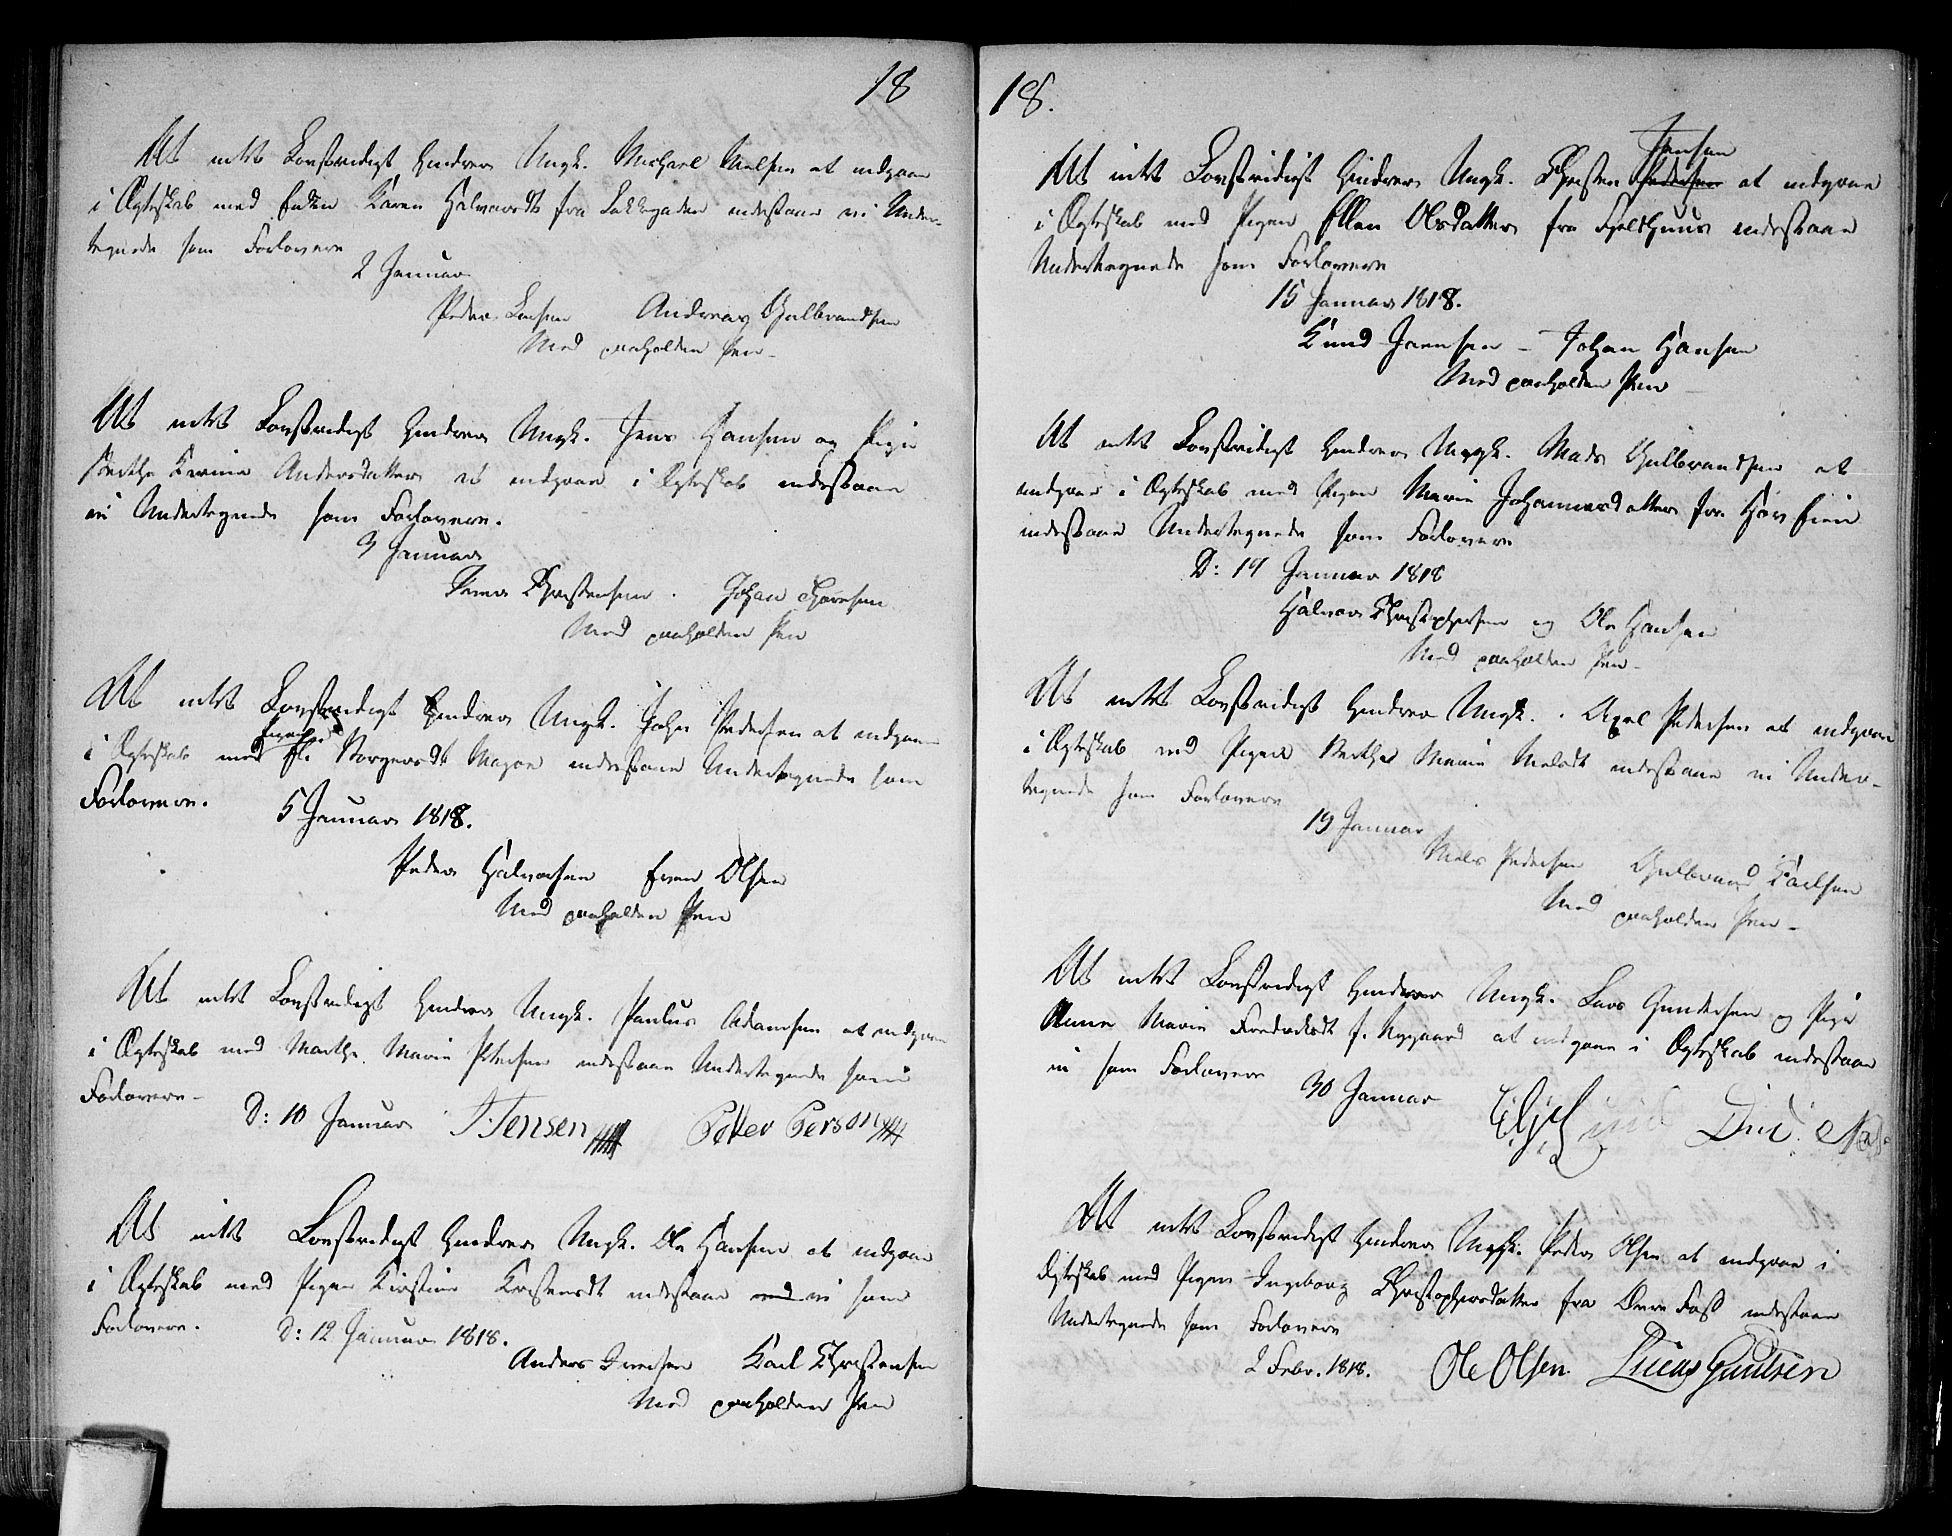 18
At intet Lovstridigt hindrer Ungk. Michael Nielsen at indgaae
i Ægteskab med Enken Karen Halvorsdt fra Sakkegaden indestaae vi Under-
tegnede som Forlovere
2 Januar
Peder Larsen Andreas Gulbrandsen
Med paaholden Pen
At intet Lovstridigt hindrer Ungk. Jens Hansen og Pige
Berthe Karine Andersdatter at indgaae i Ægteskab indestaae
vi Undertegnede som Forlovere.
3 Januar
Christensen. Johan
Med paaholden Pen
At intet Lovstridigt hindrer Ungk. John Pedersen at indgaae
i Ægteskab med Eli Torgersdt Magaae indestaae Undertegnede som
Forlovere.
5 Januar 1818.
Peder Halvorsen Even Olsen
Med paaholden Pen
At intet Lovstridigt hindrer Ungk. Paulus Adamsen at indgaae
i Ægteskab med Marthe Marie Petersen indestaae Undertegnede som
Forlovere
D: 10 Januar J. Jensen Petter Person
At intet Lovstridigt hindrer Ungk. Ole Hansen at indgaae
i Ægteskab med Pigen Kirstine indestaae vi som
Forlovere.
D: 12 Januar 1818.
Anders Iversen Carl Christensen
Med paaholden Pen
18.
Jensen
At intet Lovstridigt hindrer Ungk. Christen Pedersen at indgaae
i Ægteskab med Pigen Ellen Olsdatter fra Fjeldhuus indestaae
Undertegnede som Forlovere
15 Januar 1818.
Knud Jensen - Johan Hansen
Med paaholden Pen
At intet Lovstridigt hindrer Ungk. Mads Gulbrandsen at
indgaae i Ægteskab med Pigen Marie Johannesdatter fra
indestaae Undertegnede som Forlovere
D: 19 Januar 1818
Halvor Christophersen og Ole Hansen
Med paaholden Pen
At intet Lovstridigt hindrer Ungk. Axel Pedersen at indgaae
i Ægteskab med Pigen Berthe Marie Nielsdt indestaae vi Under-
tegnede som Forlovere
19 Januar
Niels Pedersen Gulbrand Carlsen
Med paaholden Pen
At intet Lovstridigt hindrer Ungk. Lars Gundersen og Pige
Anne Marie Fredriksdt f. Nygaard at indgaae i Ægteskab indestaae
vi som Forlovere
30 Januar
At intet Lovstridigt hindrer Ungk. Peder Olsen at indgaae i
Ægteskab med Pigen Ingeborg Christophersdatter fra indestaae
Undertegnede som Forlovere
2 Febr. 1818. Ole Olsen Lucas